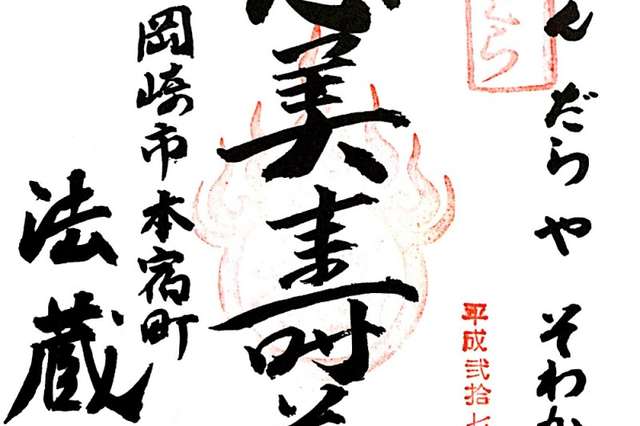 んだらや そわか
平成弐拾七
美寿
岡崎市本宿町
法蔵